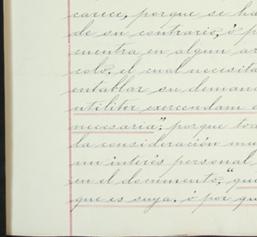 carece, porque se ha
de su contrario, ó p
cuentra en algun ar
colo, el cual necesita
entablar su deman
utiliter exercendam e
necesaria", porque tod
la consideración mu
un interés personal
en el documento, "que
que es suya, ó por qu